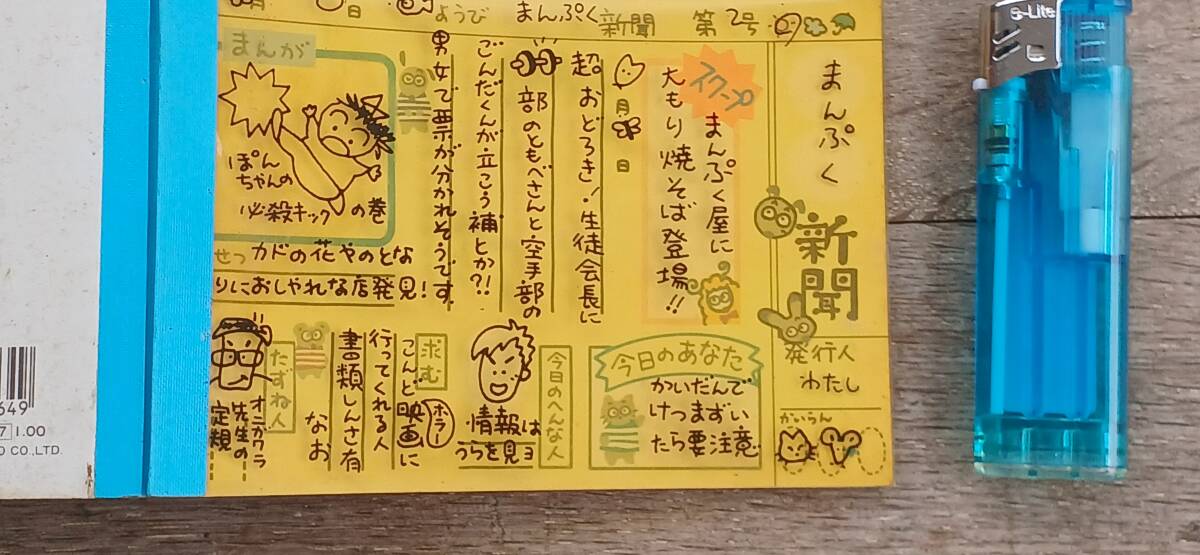 月 日 ようび まんぷく新聞 第2号
まんぷく
新聞
発行人
わたし
かいらん
スクープ
まんぷく屋に
大もり焼そば登場!!
月 日
超。おどろき!生徒会長に
部のともべさんと空手部の
ごんだくんが立こう補とか?!
男女で票が分かれそうです
まんが
ぽん
ちゃんの
必殺キックの巻
せつ カドの花やのとな
りにおしゃれな店発見!
今日のあなた
かいだんで
けつまずい
たら要注意
今日のへんな人
情報は
うらを見ョ
求む
こんど映画に
ホラー
行ってくれる人
書類しんさ有
なお
たずね人
オニガワラ
先生の
定規
e-Lite
649
7 1.00
CO.,LTD.